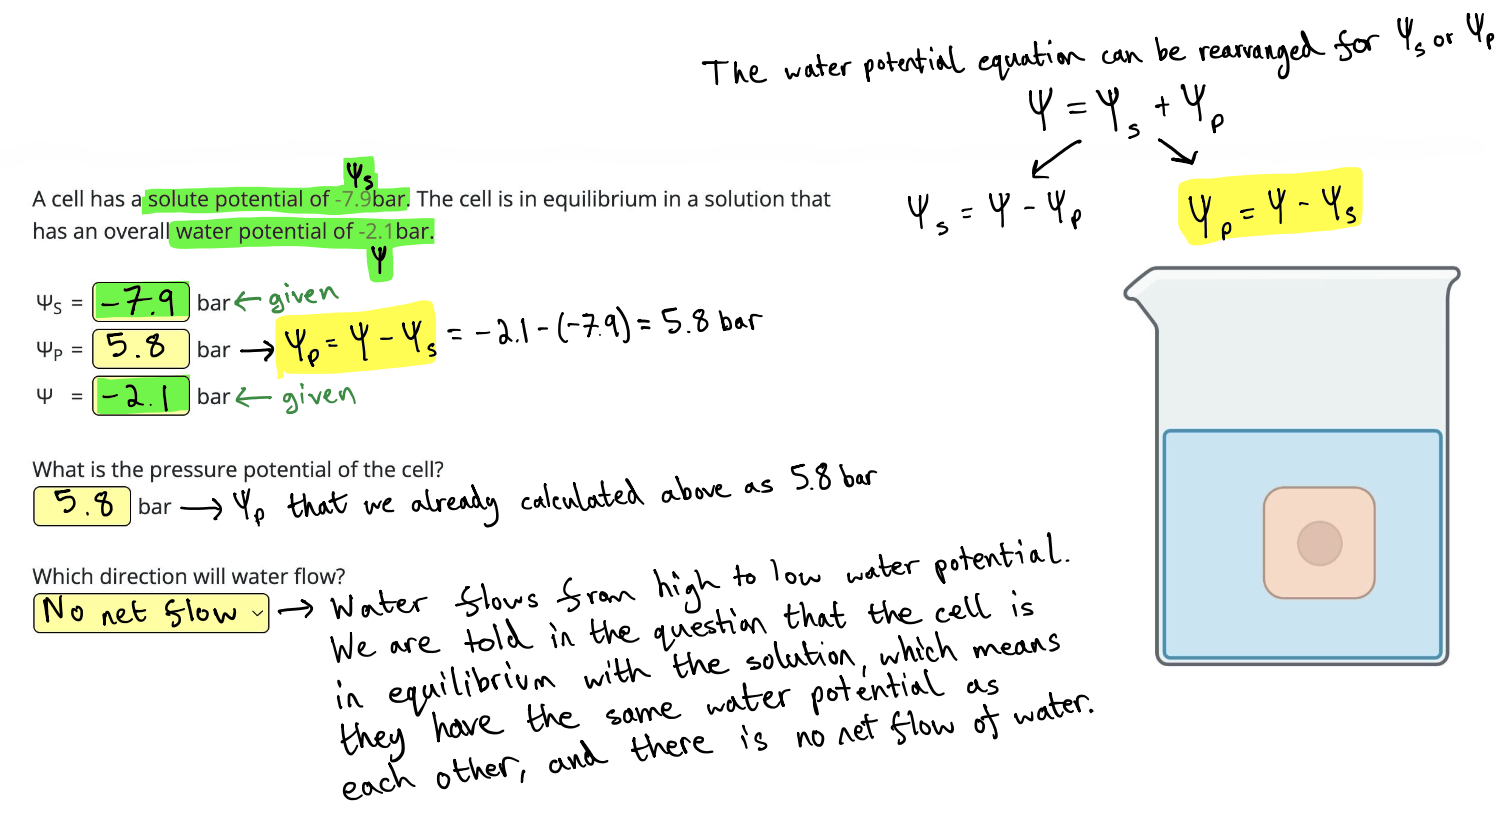 The water potential equation can be rearranged for Ψs or Ψp
Ψ = Ψs + Ψp
Ψs = Ψ - Ψp
Ψp = Ψ - Ψs
Ψs
A cell has a solute potential of -7.9bar. The cell is in equilibrium in a solution that
has an overall water potential of -2.1bar.
Ψ
ΨS = -7.9 bar ← given
ΨP = 5.8 bar → Ψp = Ψ - Ψs = -2.1 - (-7.9) = 5.8 bar
Ψ = -2.1 bar ← given
What is the pressure potential of the cell?
5.8 bar → Ψp that we already calculated above as 5.8 bar
Which direction will water flow?
No net flow → Water flows from high to low water potential.
We are told in the question that the cell is
in equilibrium with the solution, which means
they have the same water potential as
each other, and there is no net flow of water.